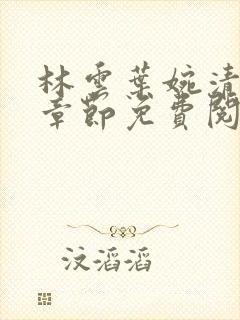 林雲葉婉清
章節免費閱
汶滔滔